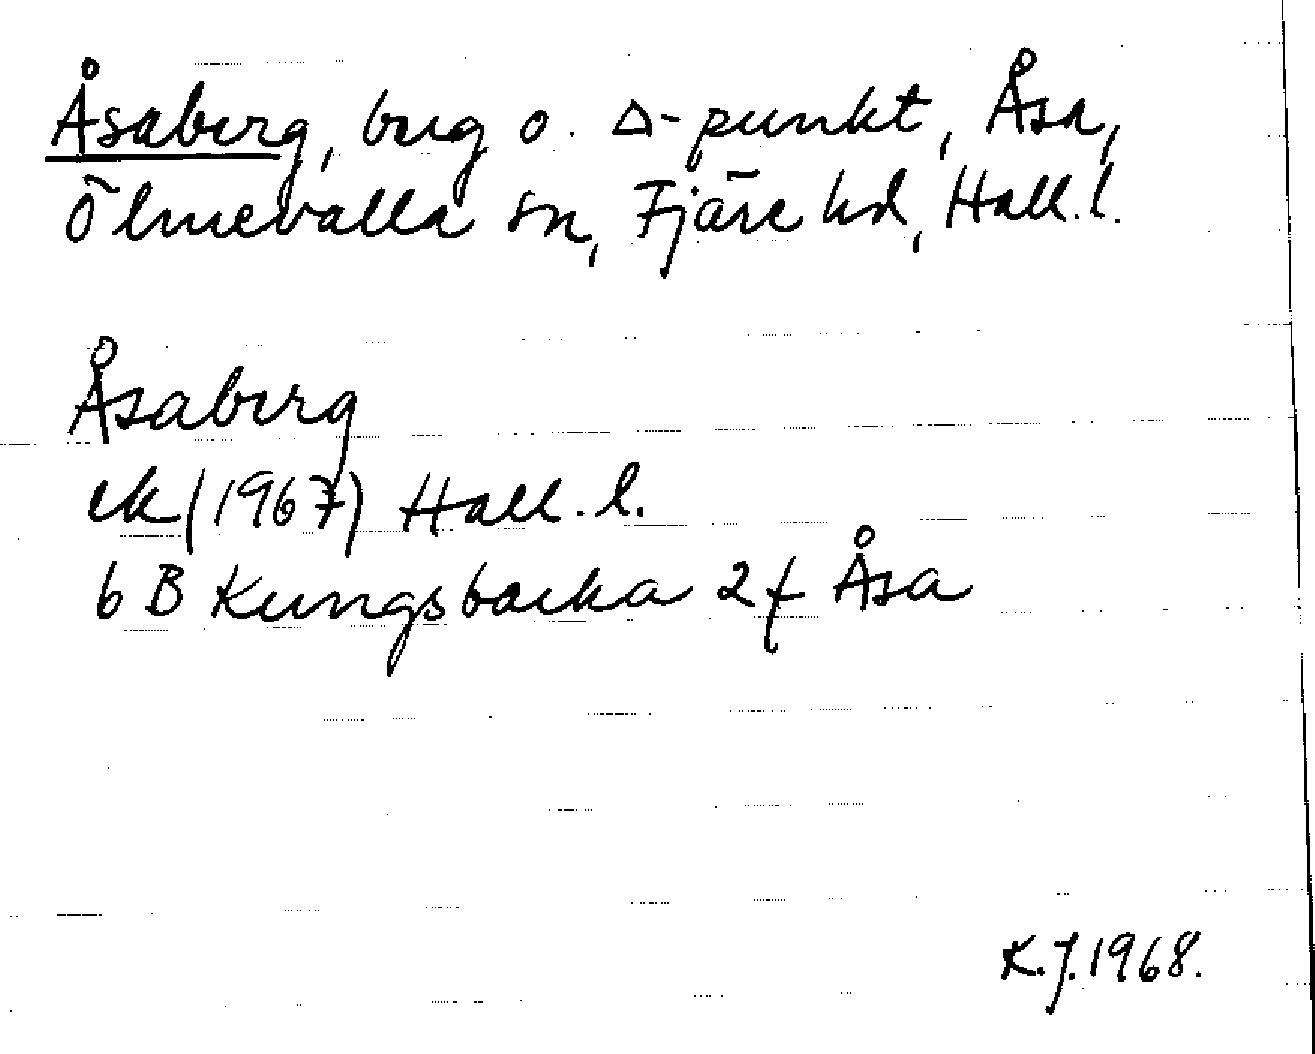 Åsaberg, berg o. Δ-punkt, Åsa,
Ölmevalla sn, Fjäre hd, Hall.l.
Åsaberg
ek (1967) Hall. l.
6 B Kungsbacka 2f Åsa
K.J. 1968.